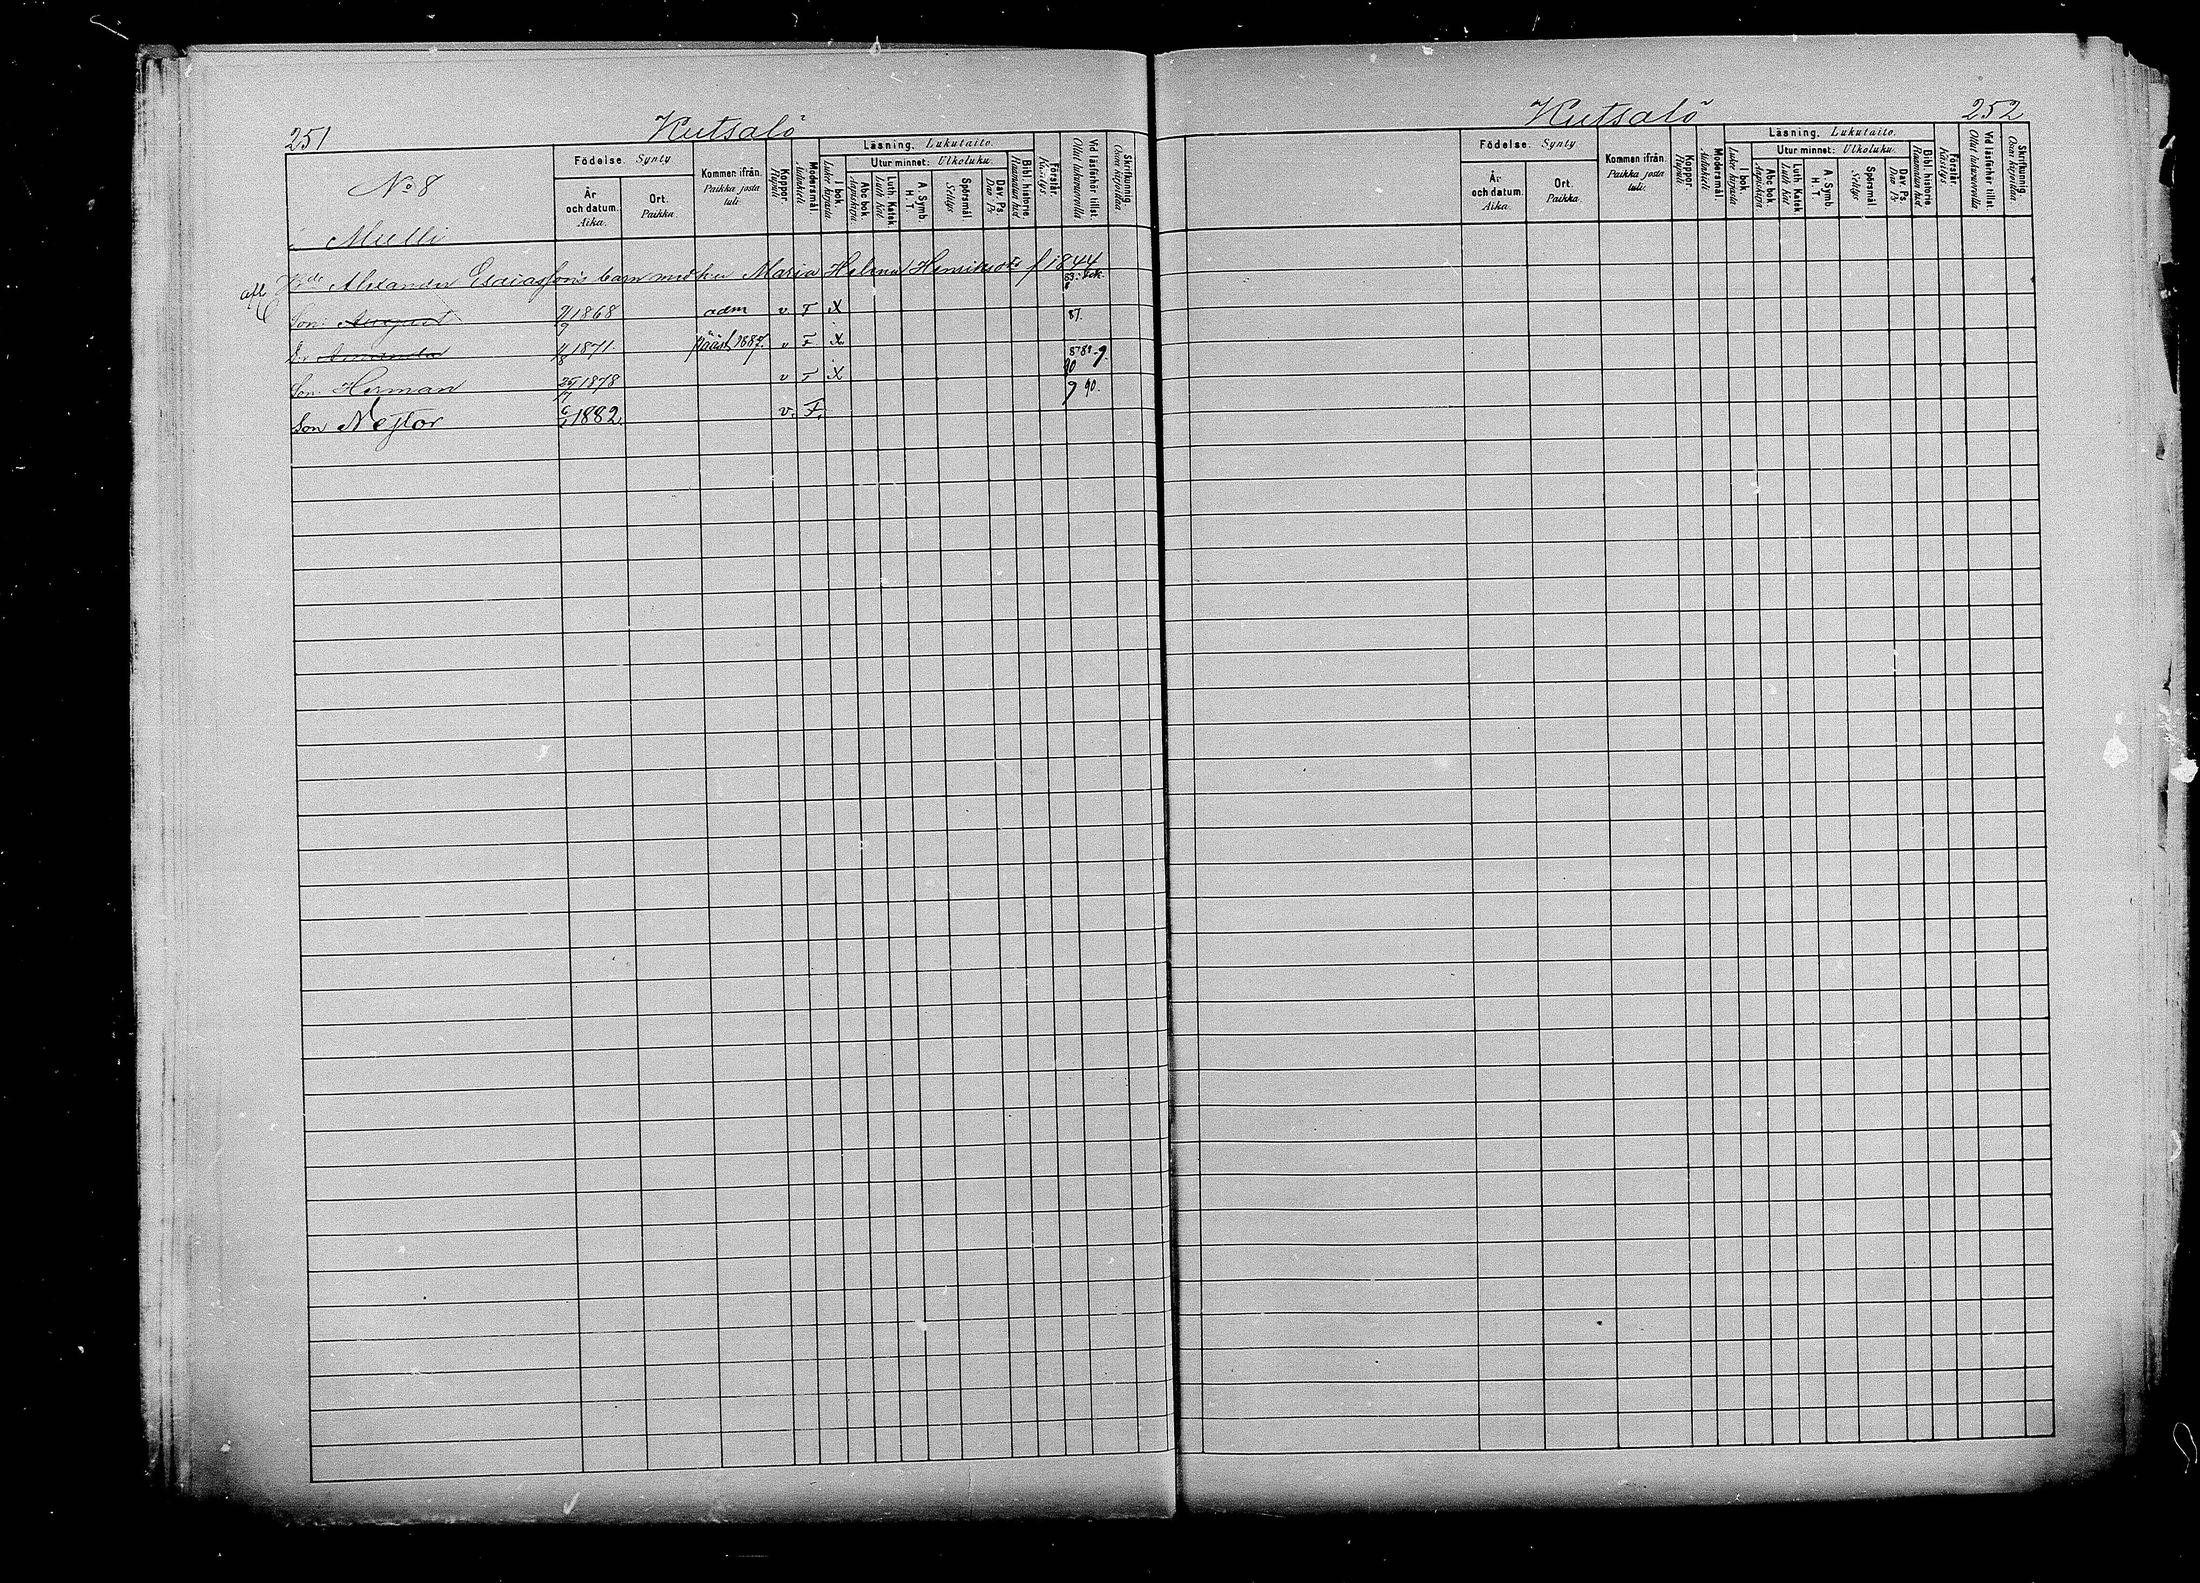 251 Kutsalö
Kutsalö 252
No 8
Födelse. Synty
År och datum. Aika.
Ort. Paikka.
Kommen ifrån. Paikka josta tuli.
Koppor. Rupuli
Modersmål. Äidinkieli
Läsning. Lukutaito.
I bok. Lukee kirjasta
Utur minnet: Ulkoluku.
Abc bok. Aapiskirja
Luth. Katek. Luth. Kat.
A. Symb. H. T.
Spörsmål Selitys
Dav. Ps. Daw. Ps.
Bibl. historie. Raamatun hist.
Förstår. Käsitys.
Vid läsförhör. tillst. Ollut lukukunnilla
Skrifkunnig. Osaa kirjoittaa
Födelse. Synty
År. och datum. Aika.
Ort. Paikka.
Kommen ifrån. Paikka josta tuli.
Koppor. Rupuli
Modersmål. Äidinkieli
Läsning. Lukutaito.
I bok Lukee kirjasta
Utur minnet: Ulkoluku.
Abc bok. Aapiskirja
Luth. Katek. Luth. Kat.
A. Symb. H. T.
Spörsmål Selitys
Dav. Ps. Daw. Ps.
Bibl. historie Raamatun hist.
Förstår. Käsitys
Vid läsförhör. tillst.
Skrifkunnig. Osaa kirjoittaa
Alexander Esaiassons barn med hu Maria Helena Henriksdr f 1844
Son August 1868 adm v F X 87.
Dr Amanda 1871. 1887. v F X
Son Herman 1878 v F X 90.
Son Nestor 1882. v. F.